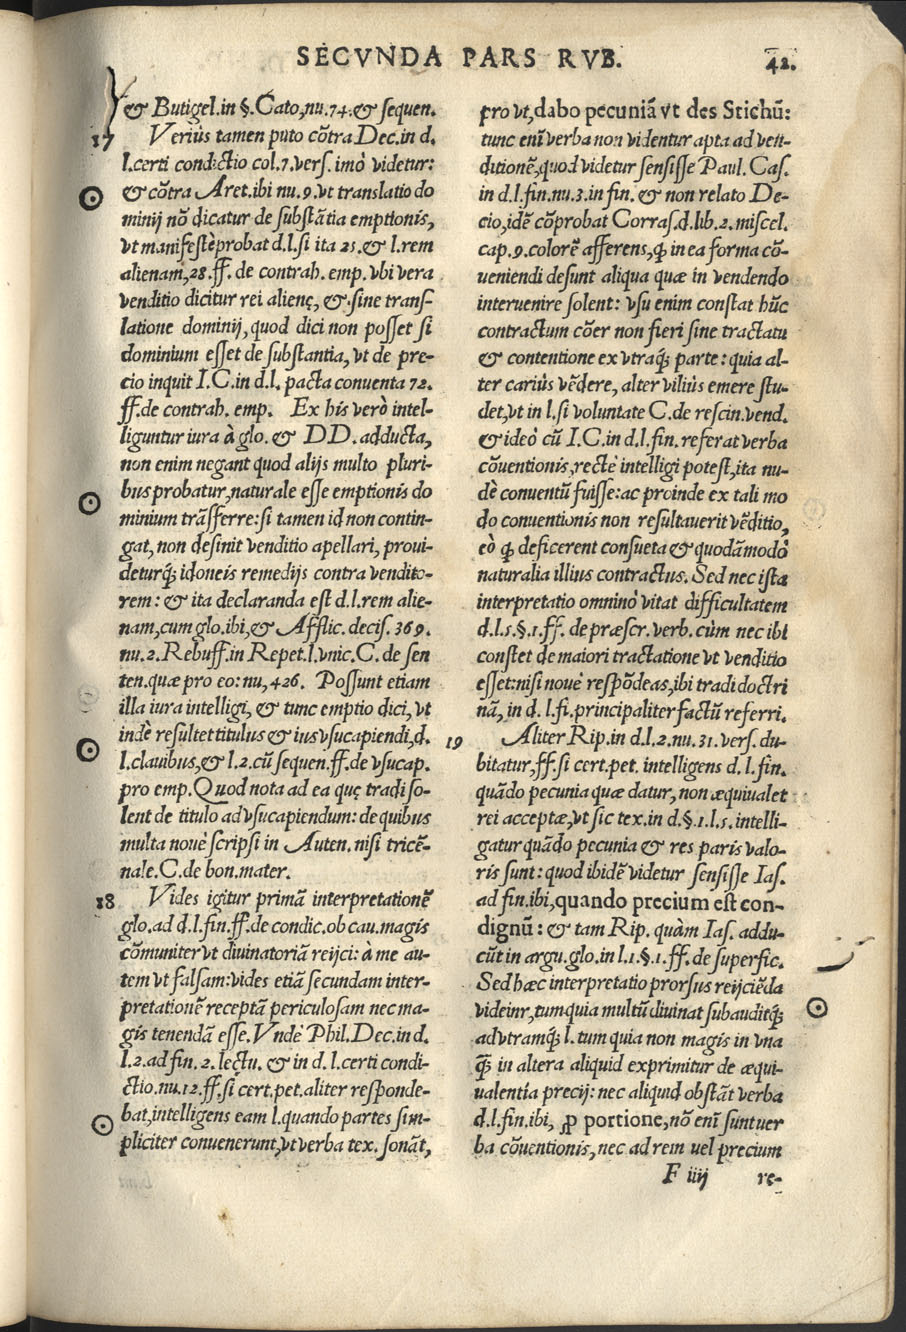 SECVNDA PARS RVB. 42.
& Butigel.in §. Cato,nu.74.& sequen.
17 Veriùs tamen puto cõtra Dec.in d.
l.certi condictio col.7.vers. imò videtur:
& cõtra Aret.ibi nu.9.vt translatio do
minij nõ dicatur de substãtia emptionis,
vt manifestè probat d.l.si ita 25.& l.rem
alienam,28.ff. de contrah. emp. vbi vera
venditio dicitur rei alienę, & sine trans-
latione dominij, quod dici non posset si
dominium esset de substantia, vt de pre-
cio inquit I.C.in d.l. pacta conuenta 72.
ff.de contrah. emp. Ex his verò intel-
liguntur iura à glo. & DD. adducta,
non enim negant quod alijs multo pluri-
bus probatur,naturale esse emptionis do
minium trãsferre:si tamen id non contin-
gat, non desinit venditio apellari, proui-
deturq́; idoneis remedijs contra vendito-
rem: & ita declaranda est d.l.rem alie-
nam,cum glo.ibi,& Afflic. decis. 369.
nu.2.Rebuff.in Repet.l.vnic.C. de sen
ten.quæ pro eo: nu,426. Possunt etiam
illa iura intelligi, & tunc emptio dici, vt
indè resultet titulus & ius vsucapiendi,d.
l.clauibus,& l.2.cũ sequen.ff.de vsucap.
pro emp. Quod nota ad ea quę tradi so-
lent de titulo ad vsucapiendum: de quibus
multa nouè scripsi in Auten. nisi tricẽ-
nale.C. de bon.mater.
18 Vides igitur primã interpretationẽ
glo.ad d.l.fin.ff.de condic.ob cau.magis
cõmuniter vt diuinatoriã reijci: à me au-
tem vt falsam:vides etiã secundam inter-
pretationẽ receptã periculosam nec ma-
gis tenendã esse. Vndè Phil. Dec.in d.
l.2.ad fin. 2. lectu. & in d.l.certi condi-
ctio.nu.12.ff.si cert.pet.aliter responde-
bat,intelligens eam l.quando partes sim-
pliciter conuenerunt,vt verba tex. sonãt,
pro vt,dabo pecuniã vt des Stichũ:
tunc enĩ verba non videntur apta ad ven-
ditionẽ,quod videtur sensisse Paul. Cas.
in d.l.fin.nu.3.in fin. & non relato De-
cio,idẽ cõprobat Corras.d.lib.2.miscel.
cap.9.colorẽ afferens,q̃ in ea forma cõ-
ueniendi desunt aliqua quæ in vendendo
interuenire solent: vsu enim constat hũc
contractum cõer non fieri sine tractatu
& contentione ex vtraq́; parte: quia al-
ter carius vẽdere, alter vilius emere stu-
det,vt in l.si voluntate C.de rescin.vend.
& ideò cũ I.C.in d.l.fin.referat verba
cõuentionis,rectè intelligi potest,ita nu-
dè conuentũ fuisse:ac proinde ex tali mo
do conuentionis non resultauerit vẽditio,
eò q̃ deficerent consueta & quodãmodò
naturalia illius contractus. Sed nec ista
interpretatio omninò vitat difficultatem
d.l.5.§.1.ff. de præscr. verb. cùm nec ibi
constet de maiori tractatione vt venditio
esset:nisi nouè respõdeas,ibi tradi doctri
nã, in d. l.fi.principaliter factũ referri.
19 Aliter Rip.in d.l.2.nu.31.vers. du-
bitatur,ff.si cert.pet. intelligens d. l. fin.
quãdo pecunia quæ datur, non æquiualet
rei acceptæ,vt sic tex.in d.§.1.l.5.intelli-
gatur quãdo pecunia & res paris valo-
ris sunt: quod ibidẽ videtur sensisse Ias.
ad fin.ibi,quando precium est con-
dignũ: & tam Rip. quàm Ias. addu-
cũt in argu.glo.in l.1.§.1.ff. de superfic.
Sed hæc interpretatio prorsus reijciẽda
videinr,tum quia multũ diuinat subauditq́;
ad vtramq́; l. tum quia non magis in vna
q̃ in altera aliquid exprimitur de æqui-
ualentia precij: nec aliquid obstãt verba
d.l.fin.ibi, ꝓ portione,nõ enĩ sunt uer
ba cõuentionis, nec ad rem uel precium
F iiij re-